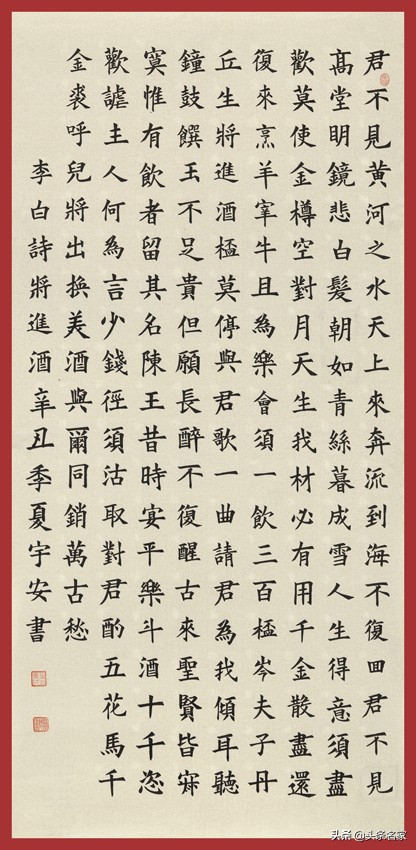 君不見黃河之水天上來奔流到海不復回君不見
髙堂明鏡悲白髮朝如青絲暮成雪人生得意須盡
歡莫使金樽空對月天生我材必有用千金散盡還
復來烹羊宰牛且為樂會須一飲三百桮岑夫子丹
丘生將進酒桮莫停與君歌一曲請君為我傾耳聽
鐘鼓饌玉不足貴但願長醉不復醒古來聖賢皆寂
寞惟有飲者留其名陳王昔時宴平樂斗酒十千恣
歡謔主人何為言少錢徑須沽取對君酌五花馬千
金裘呼兒將出換美酒與爾同銷萬古愁
李白詩將進酒辛丑季夏宇安書
头条 @头条名家